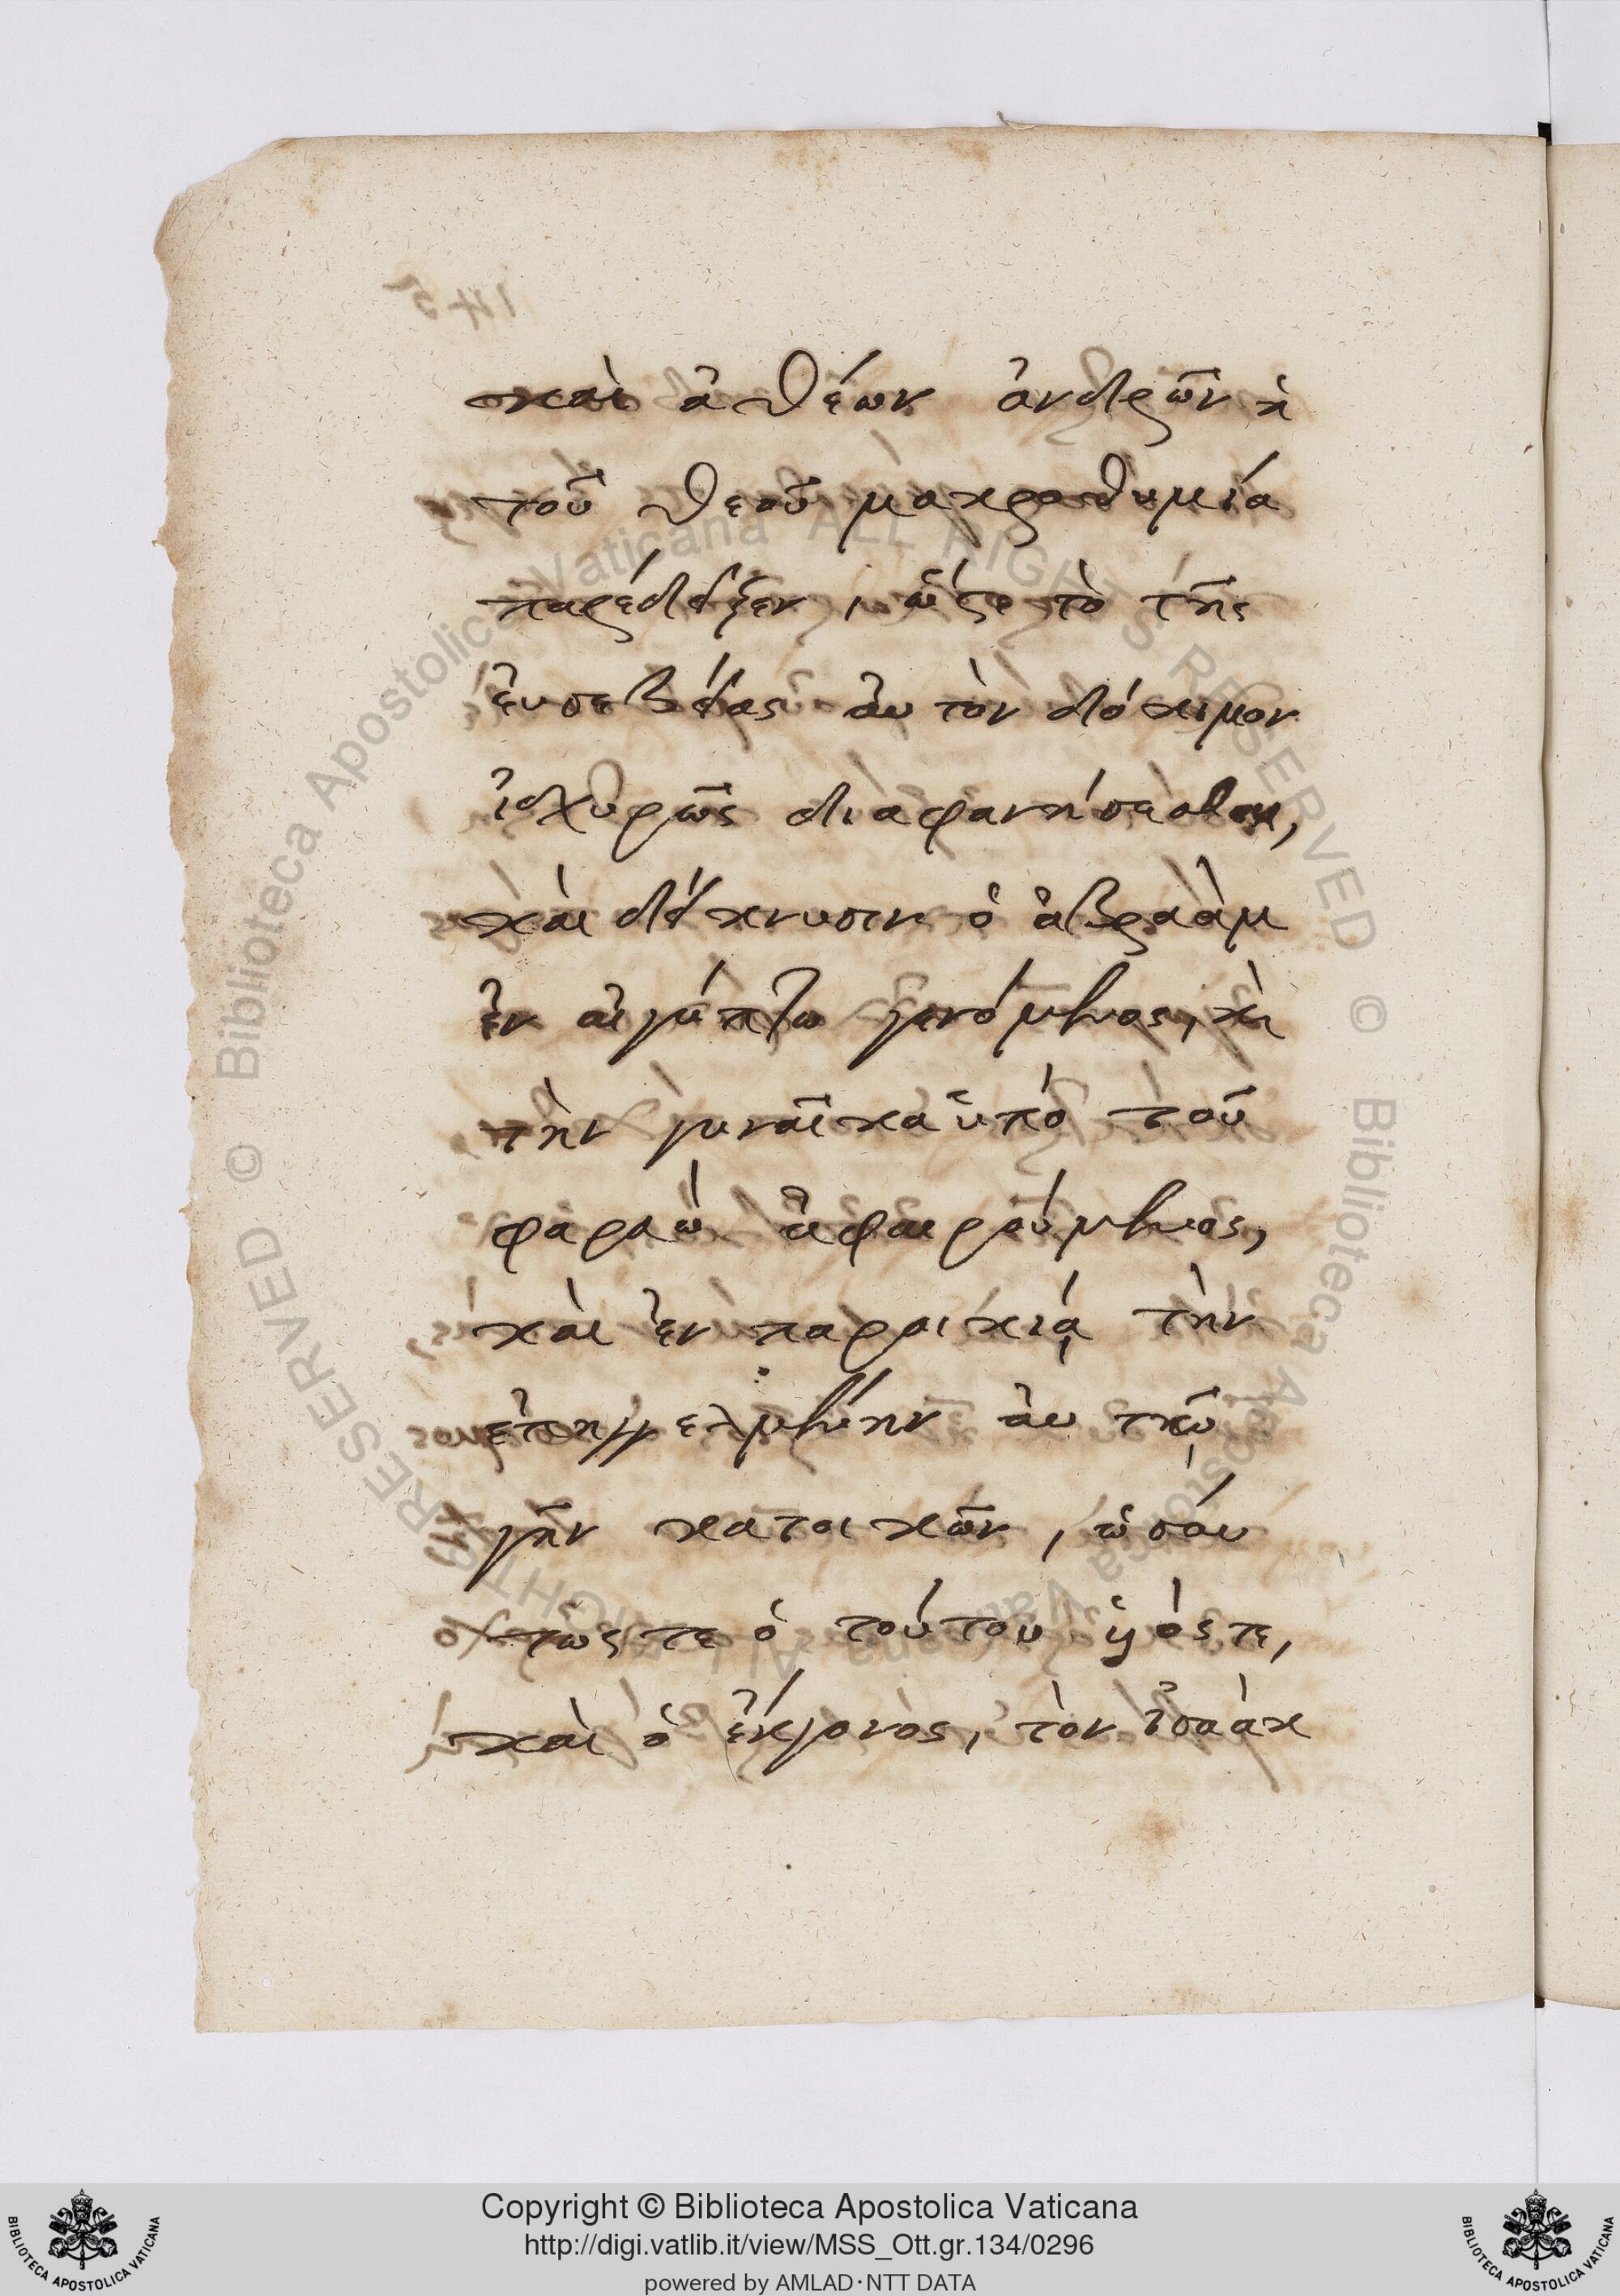 καὶ ἀθέων ἀνδρῶν ἡ
τοῦ θεοῦ μακροθυμία
παρέδειξεν, ὥστε τὸ τῆς
ἐυσεβείας ἀυτὸν δόκιμον
ἰσχυρῶς διαφανήσεσθαι,
καὶ δείκνυσιν ὁ ἀβραὰμ
ἐν αἰγύπτω γενόμενος, καὶ
τὴν γυναῖκα ὑπὸ τοῦ
φαραὼ ἀφαιρούμενος,
καὶ ἐν παροικίᾳ τὴν
ἐπηγγελμένην ἀυτῷ
γῆν κατοικῶν, ὡσάυ
τως τε ὁ τούτου ὑιός τε,
καὶ ὁ ἔκγονος, τὸν ἰσαὰκ
© Biblioteca Apostolica Vaticana ALL RIGHTS RESERVED
© Biblioteca Apostolica Vaticana ALL RIGHTS RESERVED
Copyright © Biblioteca Apostolica Vaticana
http://digi.vatlib.it/view/MSS_Ott.gr.134/0296
powered by AMLAD·NTT DATA
BIBLIOTECA APOSTOLICA VATICANA
BIBLIOTECA APOSTOLICA VATICANA